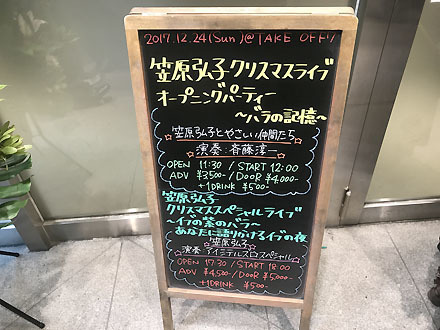 2017.12.24(Sun)@TAKE OFF7
笠原弘子クリスマスライブ
オープニングパーティー
〜バラの記憶〜
☆笠原弘子とやさしい仲間たち☆
☆演奏:斉藤淳一☆
OPEN 11:30 / START 12:00
ADV ¥3,500- / DOOR ¥4,000-
+1DRINK ¥500-
笠原弘子
クリスマススペシャルライブ
〜イブの奇のバラ〜
あなたに語りかけるイブの夜
☆笠原弘子☆
OPEN 17:30 / START 18:00
ADV ¥4,500- / DOOR ¥5,000-
+1DRINK ¥500-